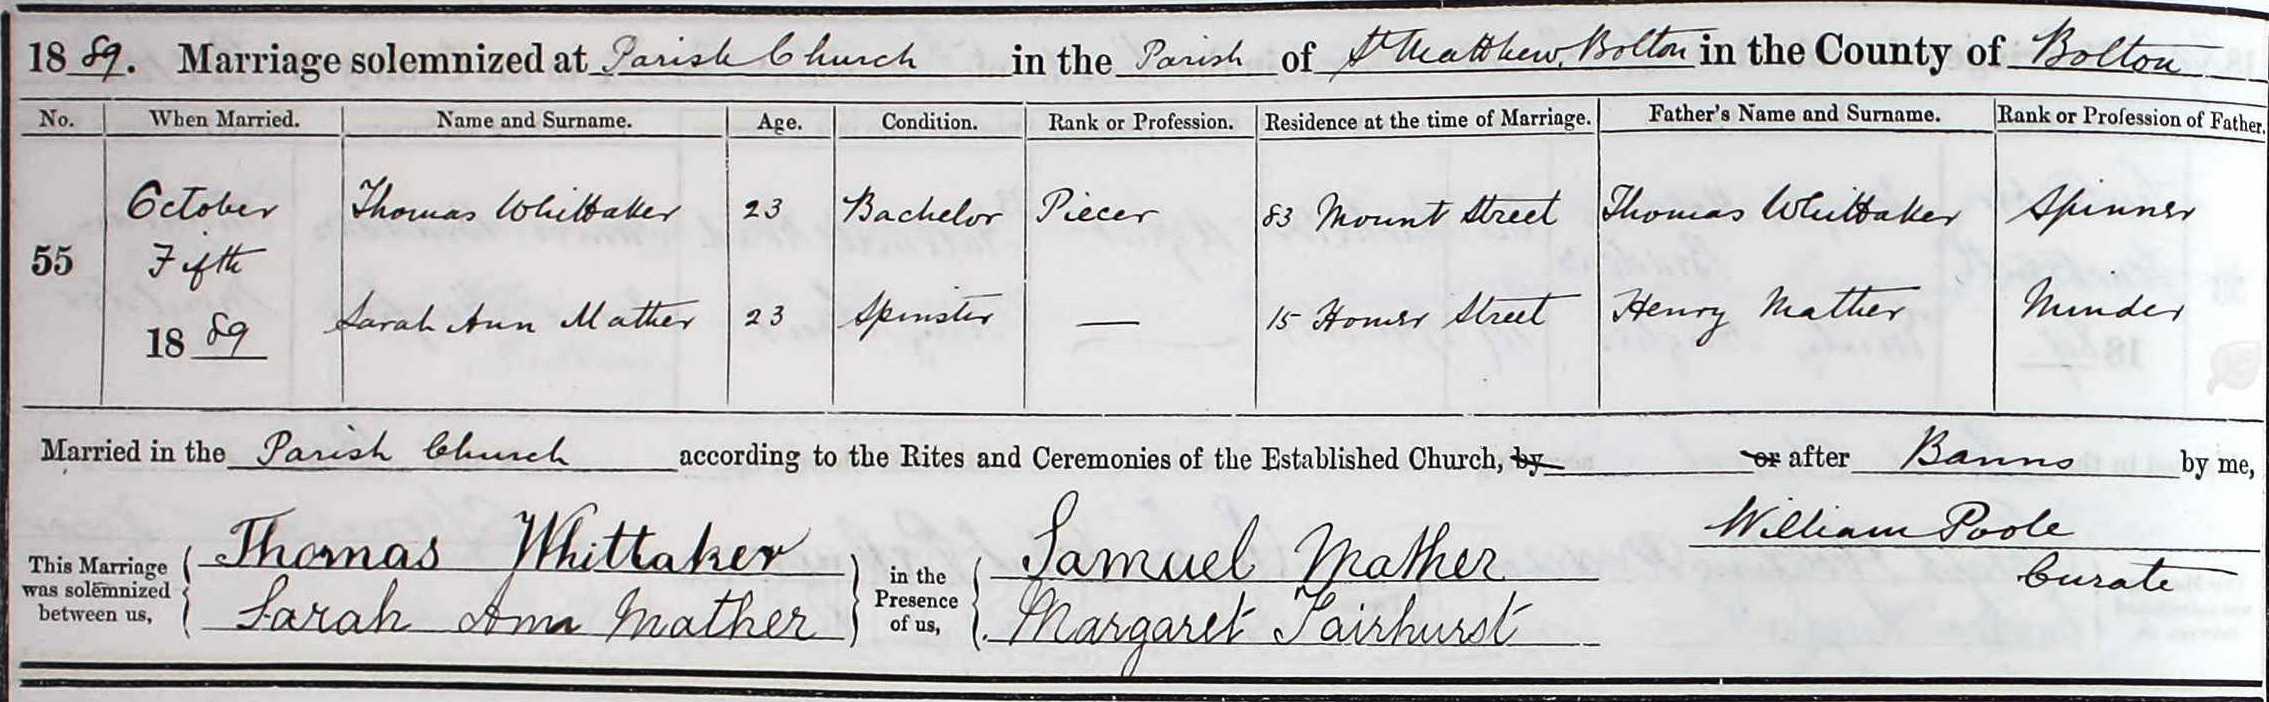 1889. Marriage solemnized at Parish Church in the Parish of St Matthew, Bolton in the County of Bolton
No. When Married. Name and Surname. Age. Condition. Rank or Profession. Residence at the time of Marriage. Father's Name and Surname. Rank or Profession of Father.
October Thomas Whittaker 23 Bachelor Piecer 83 Mount Street Thomas Whittaker Spinner
55 Fifth
1889 Sarah Ann Mather 23 Spinster — 15 Homer Street Henry Mather Minder
Married in the Parish Church according to the Rites and Ceremonies of the Established Church, by or after Banns by me,
This Marriage was solemnized between us, Thomas Whittaker in the Presence of us, Samuel Mather William Poole
Sarah Ann Mather Margaret Fairhurst Curate